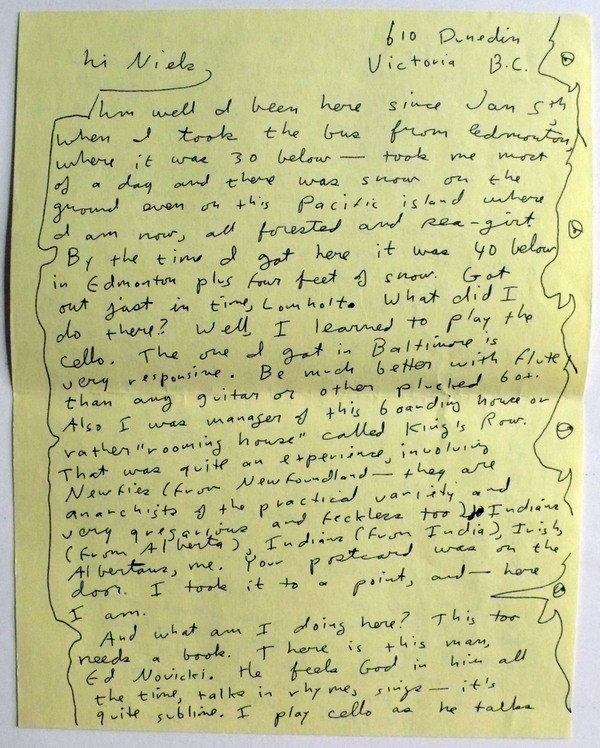 610 Dunedin
hi Niels Victoria B.C.
hm well I been here since Jan 5th
when I took the bus from Edmonton,
where it was 30 below — took me most
of a day and there was snow on the
ground even on this Pacific island where
I am now, all forested and sea-girt.
By the time I got here it was 40 below
in Edmonton plus four feet of snow. Got
out just in time, Lomholt. What did I
do there? Well, I learned to play the
cello. The one I got in Baltimore is
very responsive. Be much better with flute
than any guitar or other plucked box.
Also I was manager of this boarding house or
rather "rooming house" called King's Row.
That was quite an experience, involving
Newfies (from Newfoundland — they are
anarchists of the practical variety and
very gregarious and feckless too), Indians
(from Alberta), Indians (from India), Irish,
Albertans, me. Your postcard was on the
door. I took it to a point, and — here
I am.
And what am I doing here? This too
needs a book. There is this man,
Ed Novicki. He feels God in him all
the time, talks in rhyme, sings — it's
quite sublime. I play cello as he talks